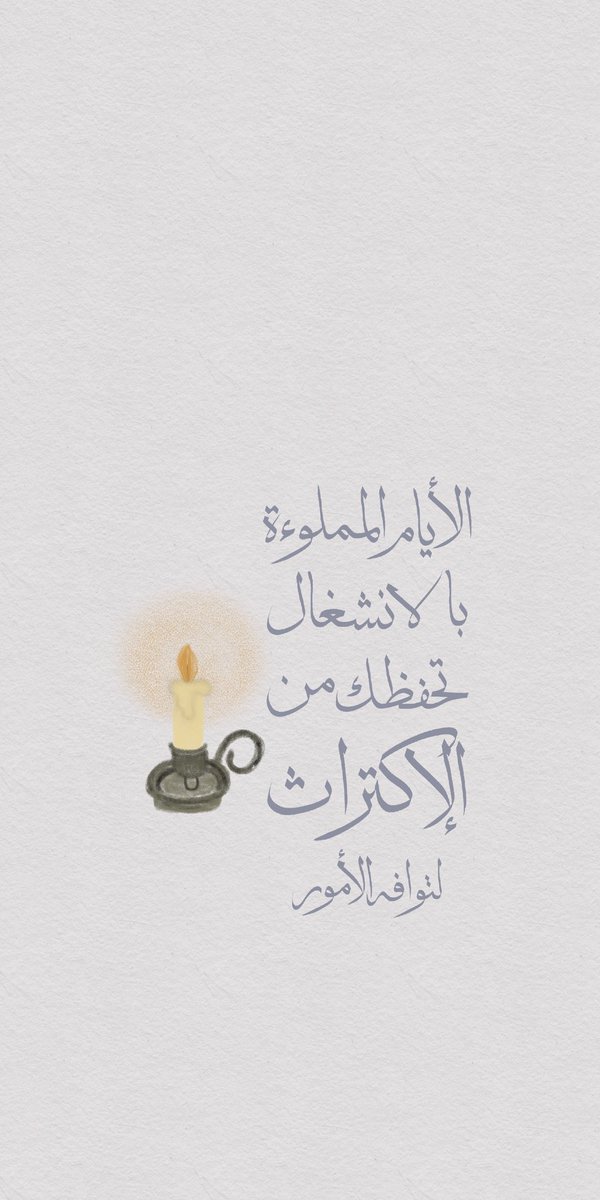 الأيام المملوءة
بالانشغال
تحفظك من
الإكتراث
لتوافه الأمور